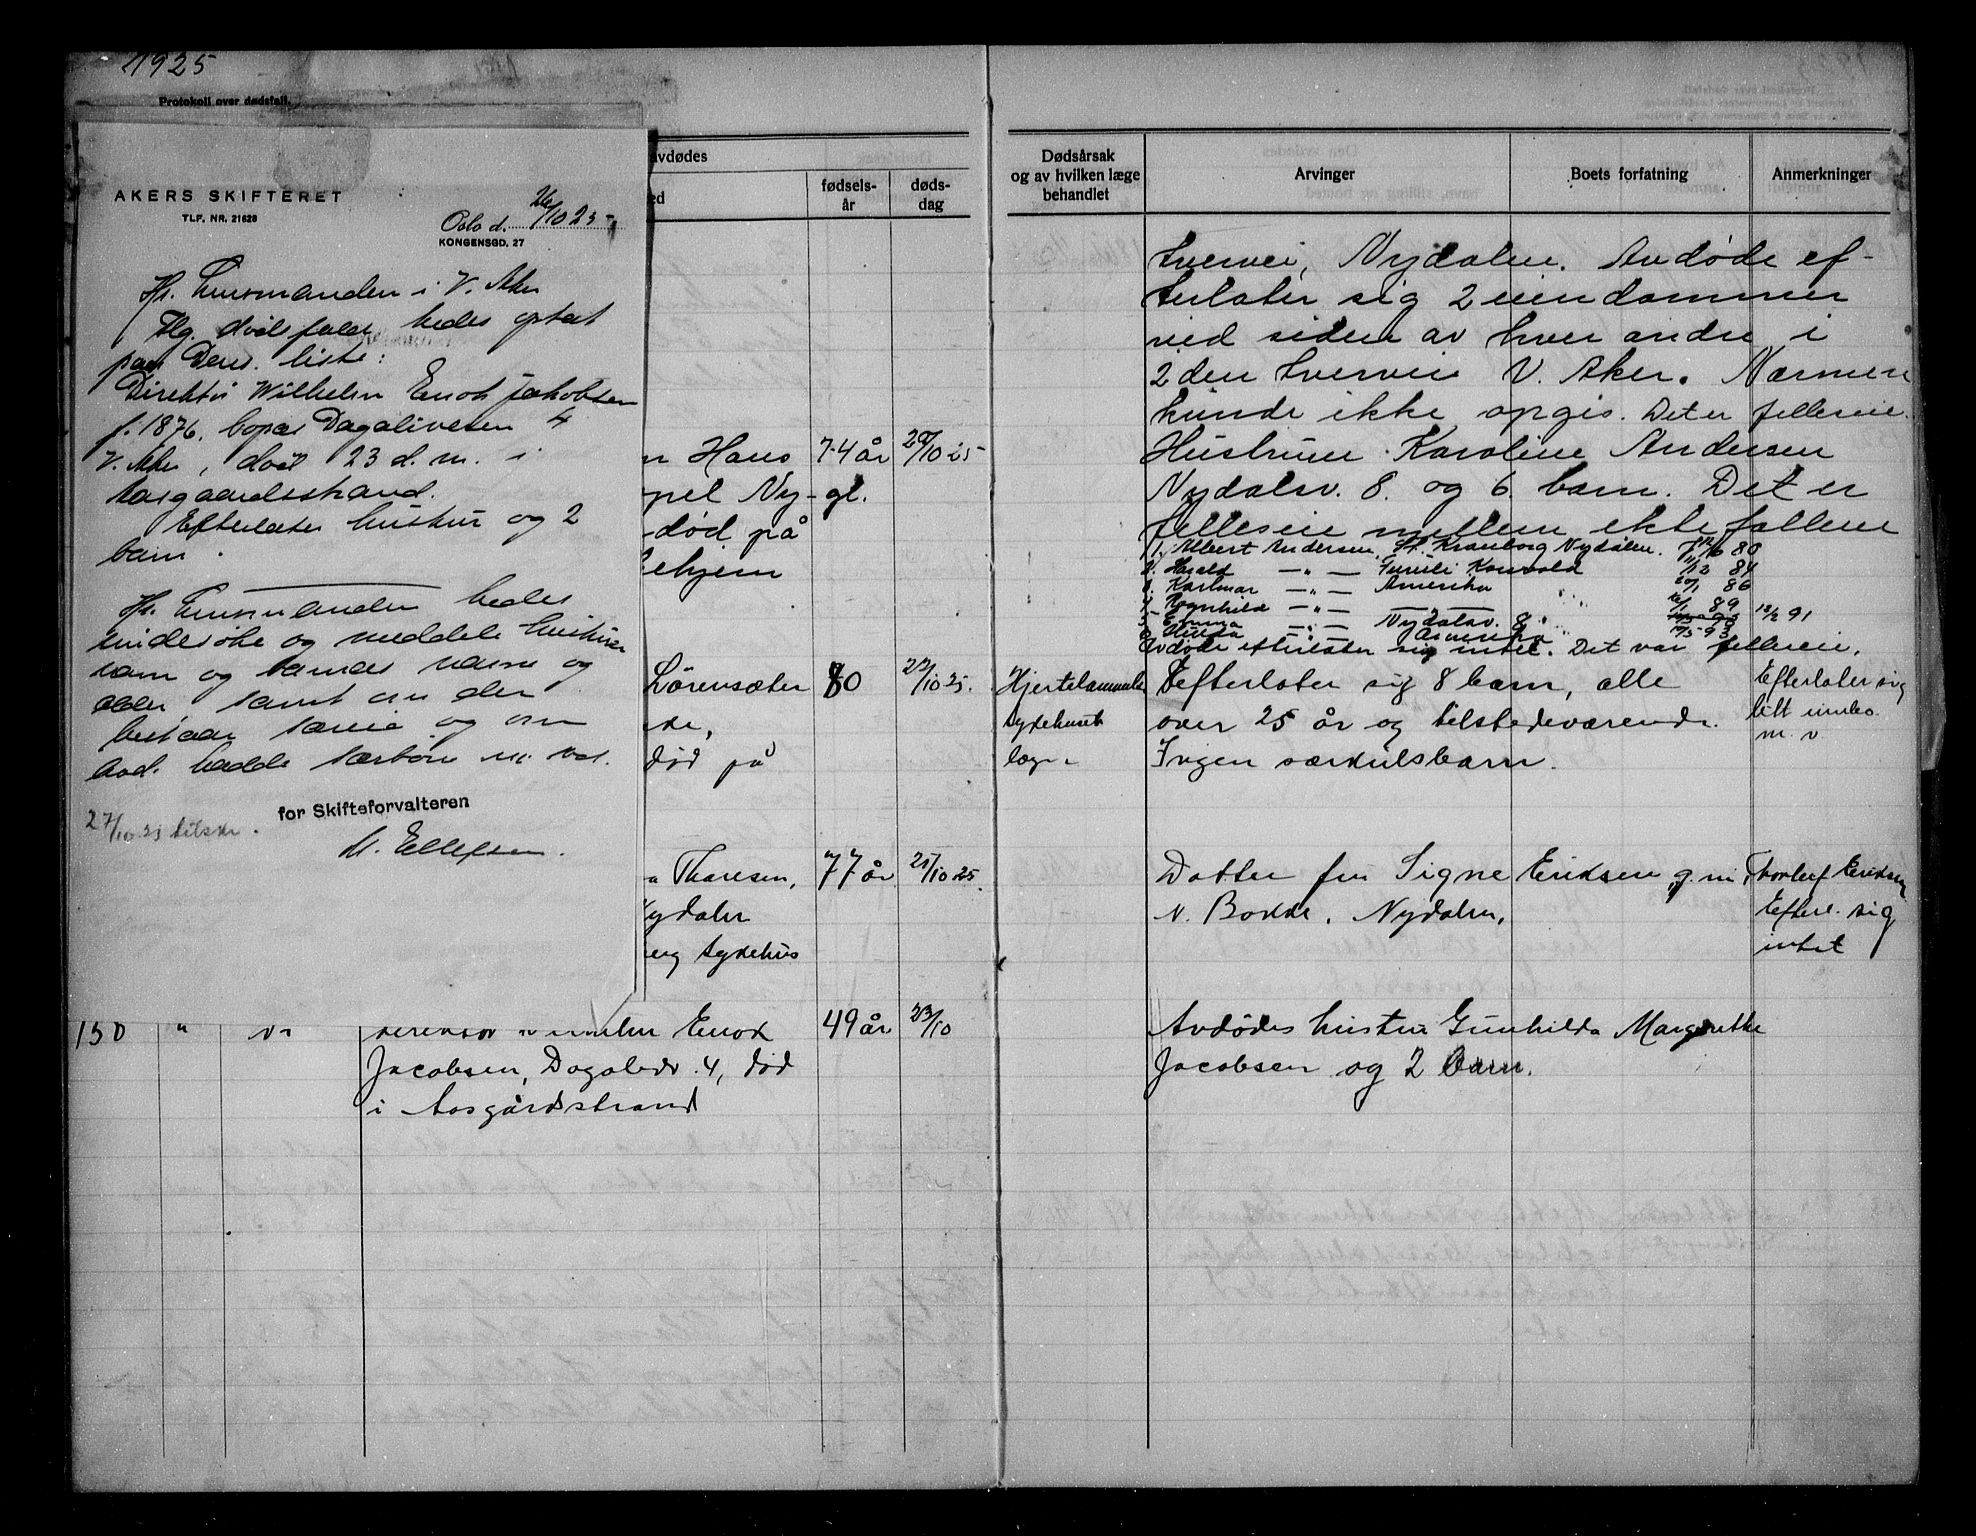 1925
Protokoll over dødsfall.
AKERS SKIFTERET
TLF. NR. 21628
Oslo d. 26/10 25
KONGENSGD. 27
Hr. Lensmanden i V. Aker
Flg. dødsfald bedes optat
paa Deres liste:
Direktør Wilhelm Enok Jakobsen
f. 1876, bopæl Dagaliveien 4
V. Aker, død 23 d. m. i
Aasgaardsstrand.
Efterlater hustru og 2
barn.
Hr. Lensmanden bedes
undersøke og meddele hustruens
navn og barnas navne og
alder, samt om der
bestaar særeie og om
avd. hadde særbørn m. v.
27/10 25 tilskr.
for Skifteforvalteren
M. Ellefsen.
avdødes
ed
fødsels-
år
døds-
dag
n Hans 74 år 20/10 25
pel Ny- gl.
død på
ehjem
Lörensæter 80 22/10 25.
de,
død på
a Thoresen, 77 år 25/10 25.
ydalen
erg sykehus
150 " v. Wilhelm Enok 49 år 23/10
Jacobsen, Dagaliv. 4, død
i Aasgårdstrand
Dødsårsak
og av hvilken læge
behandlet
Arvinger
Boets forfatning
Anmerkninger
tvervei, Nydalen. Avdøde ef-
terlater sig 2 eiendommer
ved siden av hver andre i
2den tverveie V. Aker. Nærmere
kunde ikke opgis. Det er felleseie.
Hustruen Karoline Andersen
Nydalsv. 8. og 6 barn. Det er
felleseie mellem ektefællene
1. Albert Andersen, St. Kranborg Nydalen. 80
2. Harald —„— 84
3. Karlmar —„— Amerika 20/1 86
4. Ragnhild —„— 89
5. Emma —„— Nydalsv. 8. 12/2 91
6. Hulda —„— Amerika 19/5 93
Avdøde efterlater sig intet. Det var felleseie.
Hjertelammelse
sykehusets
læge.
Efterlater sig 8 barn, alle
over 25 år og tilstedeværende.
Ingen særkulsbarn.
Efterlater sig
litt innbo
m. v
Datter fru Signe Eriksen g. m. Thorleif Eriksen
N. Bakke, Nydalen,
Efterl. sig
intet
Avdødes hustru Gunhilda Margrethe
Jacobsen og 2 barn.